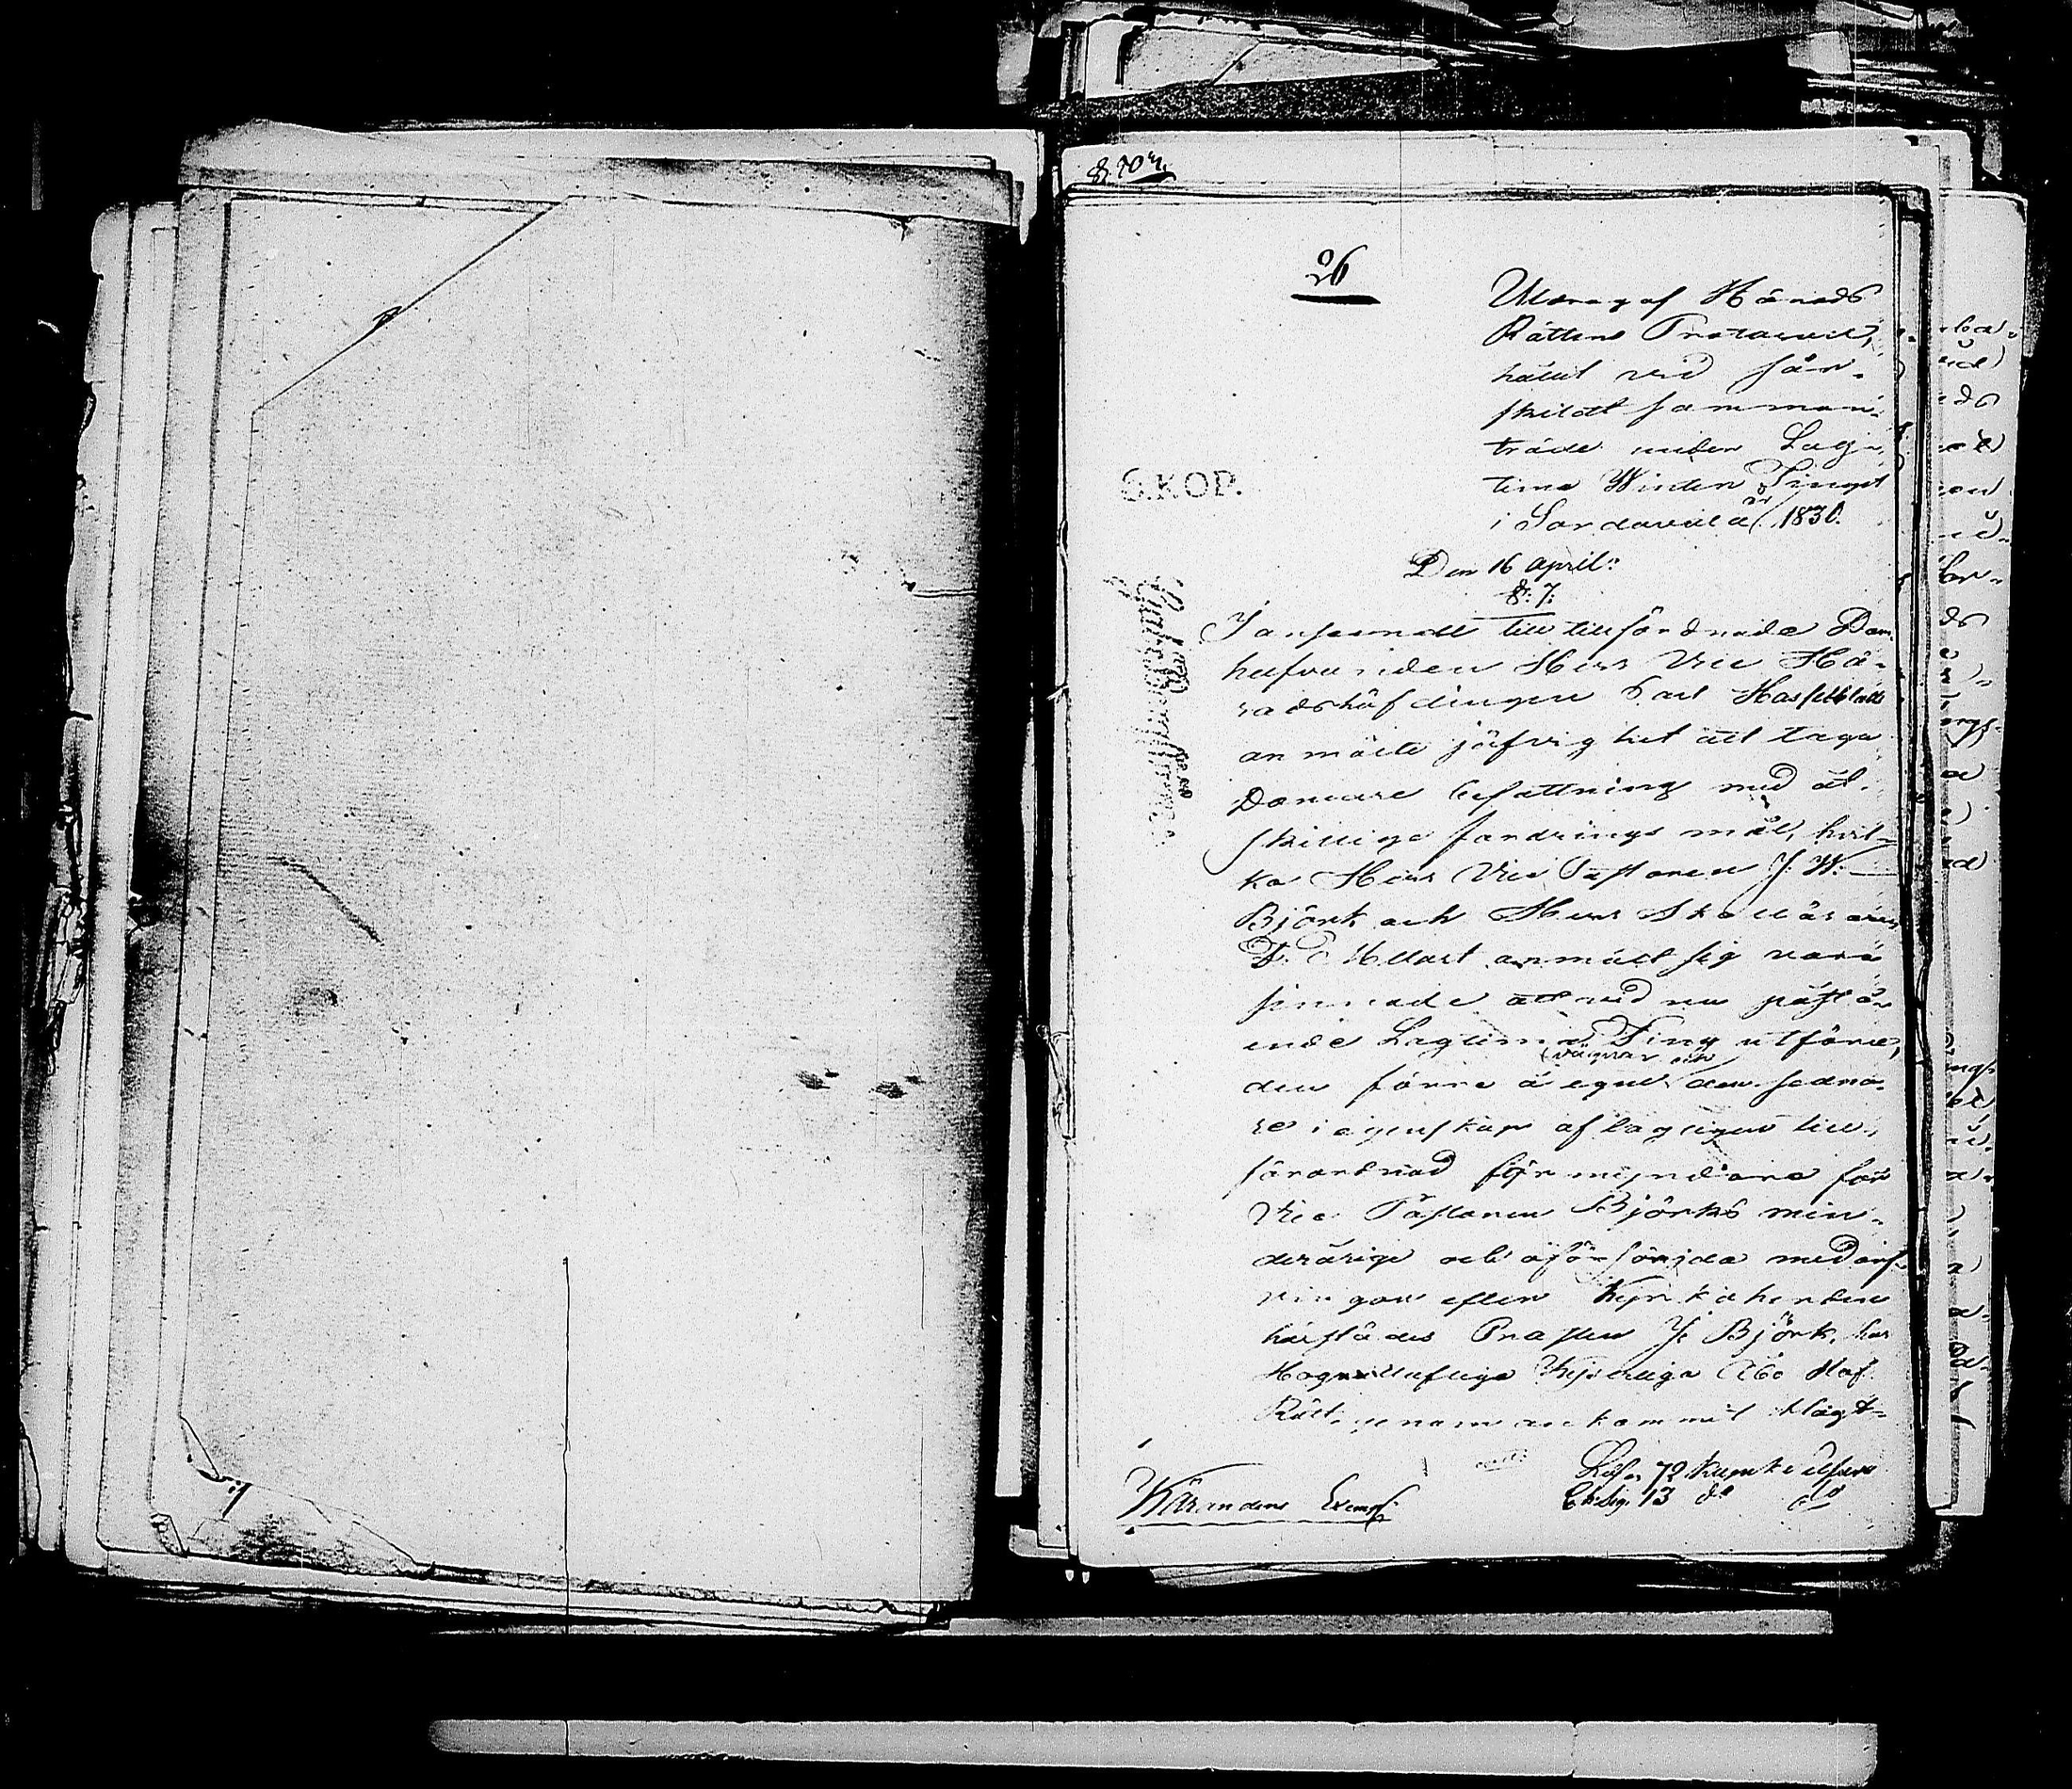 26
Utdrag af Härads
Rättens Protocoll,
hållit vid sär-
skildt samman-
träde under Lag-
tima Winter Tinget
i Sordavala år 1830.
S.KOP.
Den 16 April:
§: 7:
I anseende till tillförordnade Dom
hafvanden Herr Vice Hä-
radshöfdingen Carl Hasselblatt
anmälte jäfvighet att taga
Domare befattning med åt-
skillige fordrings mål, hvil-
ka Herr Vice Pastoren J. W.
Björk och Herr
anmält sig vara
sinnade att vid nu påstå-
ende Lagtima Ting utföra,
den förre å egne vägnar och den sedna-
re i egenskap af lagligen till-
förordnad förmyndare för
Vice Pastoren Björks min-
derårige och oförsörjda medarf-
vingar efter Kyrkoherden
härstädes Prosten J. Björk, har
Höglofliga Kejserliga Åbo Hof
Rätt, genom ankommit
Lösen 72 kopek
Ch: Sig. 13 do do
Kärandens Exempl: